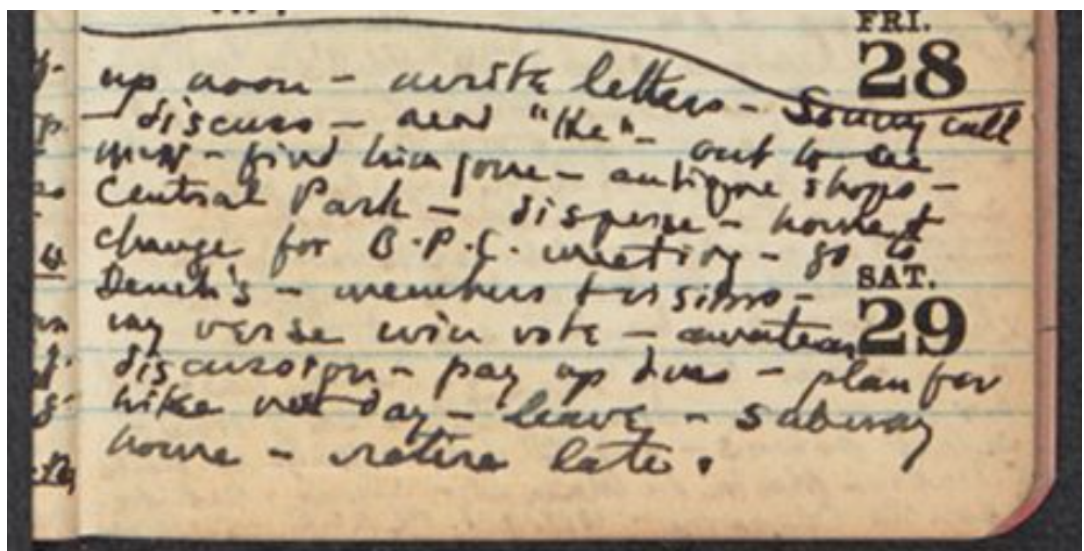 FRI.
28
up noon – write letters – Sonny call
– discuss – read – out to see
– find him gone – antique shops –
Central Park – disperse – home &
change for B.P.C. meeting – go to
SAT.
29
Dench's – members & visitors –
my verse win vote – amateur
discussion – pay up dues – plan for
hike next day – leave – subway
home – retire late.